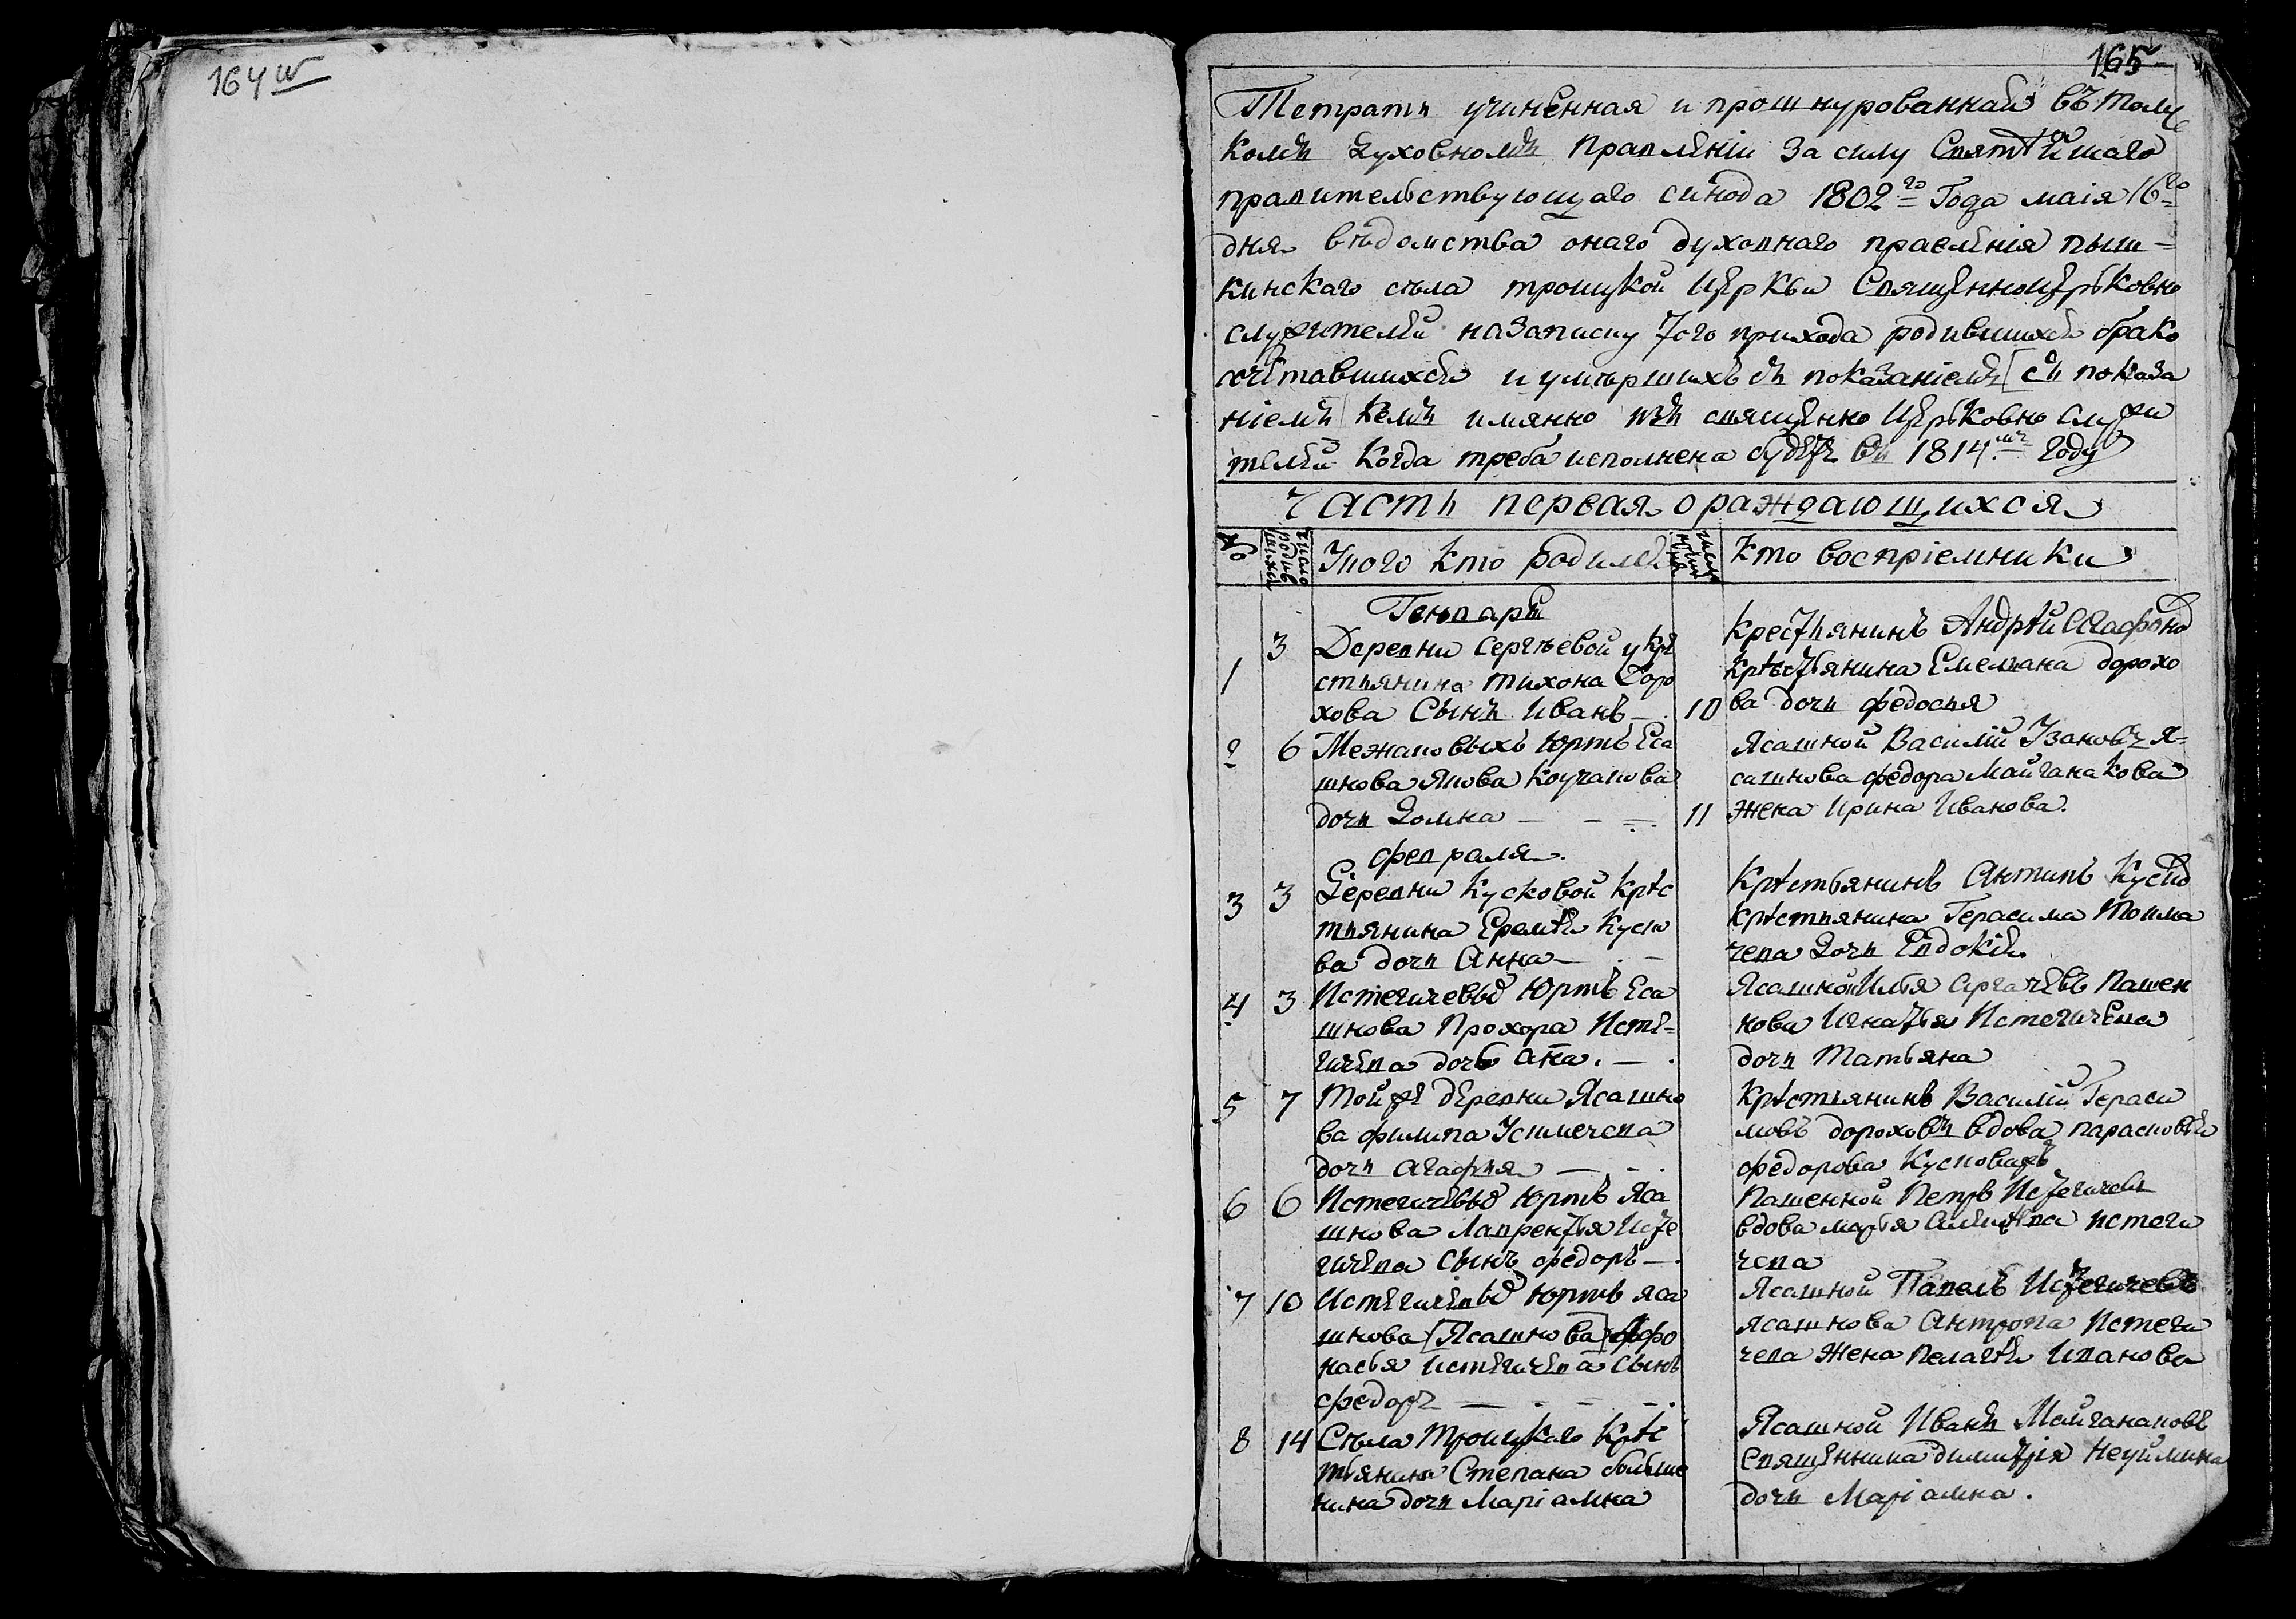 164 w
165
Тетрать учиненная и прошнурованная въ томс
комъ духовномъ правленіи за силу Святѣйшаго
правительствующаго синода 1802го Года маія 16го
дня вѣдомства онаго духовнаго правленія пыш-
кинскаго сѣла троицкой церкви Священноцерковно
служителей на записку того прихода родившихся брако
сочетавшихся и умѣршихъ съ показаніемъ [съ показа
ніемъ] кемъ имянно изъ священно церковно служи
телей когда треба исполнена будетъ въ 1814мъ году
Часть первая о раждающихся
№
число родившихся
У кого кто родился
число
Кто воспріемники
Генварь
1 3 Деревни Сергѣевой у кре
стьянина тихона Доро
хова Сынъ Иванъ — 10
Крестьянинъ Андрѣй Агафоно
крѣстьянина Емельяна дорохо
ва дочь федосья
2 6 юртъ Еса
шнова Якова
дочь Домна — — 11
Ясашной Василій Я-
сашнова федора Майганакова
Жена Ирина Иванова.
февраля.
3 3 Деревни Кусковой крѣс
тьянина Еремѣя Куско
ва дочь Анна —
Крѣстьянинъ Антипъ Куско
крѣстьянина Герасима Толма
чева Дочь Евдокія.
4 3 Истегичевыхъ Юртъ Еса
шнова Прохора Исте-
гичева дочь Ана. —
Ясашной Илья Сергачевъ пашен
нова Игнатья Истегичева
дочь Татьяна
5 7 Той же деревни Ясашно
ва филипа
дочь агафья — -
Крѣстьянинъ Василій Гераси
мовъ дороховъ вдова парасковья
федорова Кусковыхъ
6 6 Истегичевыхъ Юртъ Яса
шнова Лаврентья Исте
гичева Сынъ федоръ —
Пашенной Петръ Истегичевъ
вдова марья Алексѣева истеги
чева
7 10 Истегичевыхъ юртъ яса
шнова [Ясашнова] Афо
насья истегичева Сынъ
федоръ — - — -
Ясашной Павелъ Истегичевъ
ясашнова Антропа Истеги
чева Жена Пелагѣя Иванова
8 14 Сѣла Троицкаго Крѣс
тьянина Степана
нина дочь Маріамна
Ясашной Иванъ Майганаковъ
Священника димитрія Неуймина
дочь Маріамна.